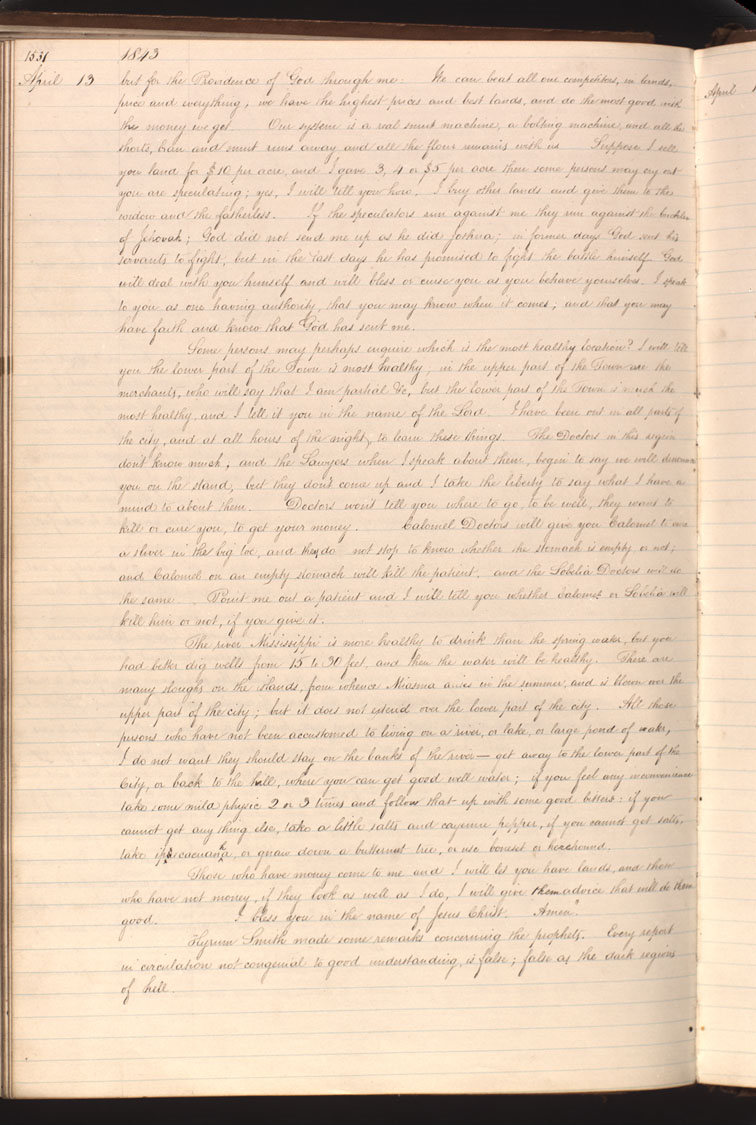 1531 1843
April 13 but for the Providence of God through me: We can beat all our competitors, in lands,
price and everything; we have the highest prices and best lands, and do the most good with
the money we get. Our system is a real smut machine, a bolting machine; and all the
shorts, bran and smut runs away and all the flour remains with us. Suppose I sell
you land for $10 per acre, and I gave 3, 4 or $5 per acre then some persons may cry out
you are speculating; yes, I will tell you how. I buy other lands and give them to the
widow and the fatherless. If the speculators run against me they run against the buckler
of Jehovah; God did not send me up as he did Joshua; in former days God sent his
servants to fight, but in the last days he has promised to fight the battle himself. God
will deal with you himself and will bless or curse you as you behave yourselves. I speak
to you as one having authority, that you may know when it comes, and that you may
have faith and know that God has sent me.
Some persons may perhaps enquire which is the most healthy location? I will tell
you the lower part of the Town is most healthy; in the upper part of the Town are the
merchants, who will say that I am partial &c, but the lower part of the Town is much the
most healthy, and I tell it you in the name of the Lord. I have been out in all parts of
the city, and at all hours of the night, to learn these things. The Doctors in this region
don't know much; and the Lawyers when I speak about them, begin to say we will denounce
you on the stand, but they don't come up and I take the liberty to say what I have a
mind to about them. Doctors wont tell you where to go, to be well, they want to
kill or cure you, to get your money. Calomel Doctors will give you Calomel to cure
a sliver in the big toe, and they do not stop to know whether the stomach is empty or not;
and Calomel on an empty stomach will kill the patient, and the Lobelia Doctors will do
the same. Point me out a patient and I will tell you whether Calomel or Lobelia will
kill him or not, if you give it.
The river Mississippi is more healthy to drink than the spring water, but you
had better dig wells from 15 to 30 feet, and then the water will be healthy. There are
many sloughs on the Islands, from whence Miasma arises in the summer, and is blown over the
upper part of the city; but it does not extend over the lower part of the city. All those
persons who have not been accustomed to living on a river, or lake, or large pond of water,
I do not want they should stay on the banks of the river — get away to the lower part of the
City, or back to the hill, where you can get good well water; if you feel any inconvenience
take some mild physic 2 or 3 times and follow that up with some good bitters: if you
cannot get any thing else, take a little salts and cayenne pepper, if you cannot get salts,
take ipecacuanha, or gnaw down a butternut tree, or use boneset or horehound.
Those who have money come to me and I will let you have lands, and those
who have not money, if they look as well as I do, I will give them advice that will do them
good. I bless you in the name of Jesus Christ. Amen".
Hyrum Smith made some remarks concerning the prophets. Every report
in circulation not congenial to good understanding, is false; false as the dark regions
of hell.
April